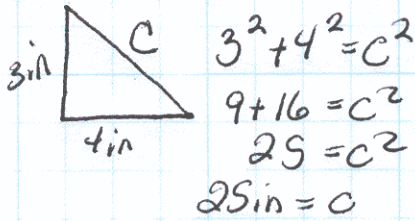 3in
C
4in
3²+4²=C²
9+16=C²
25=C²
25in=C